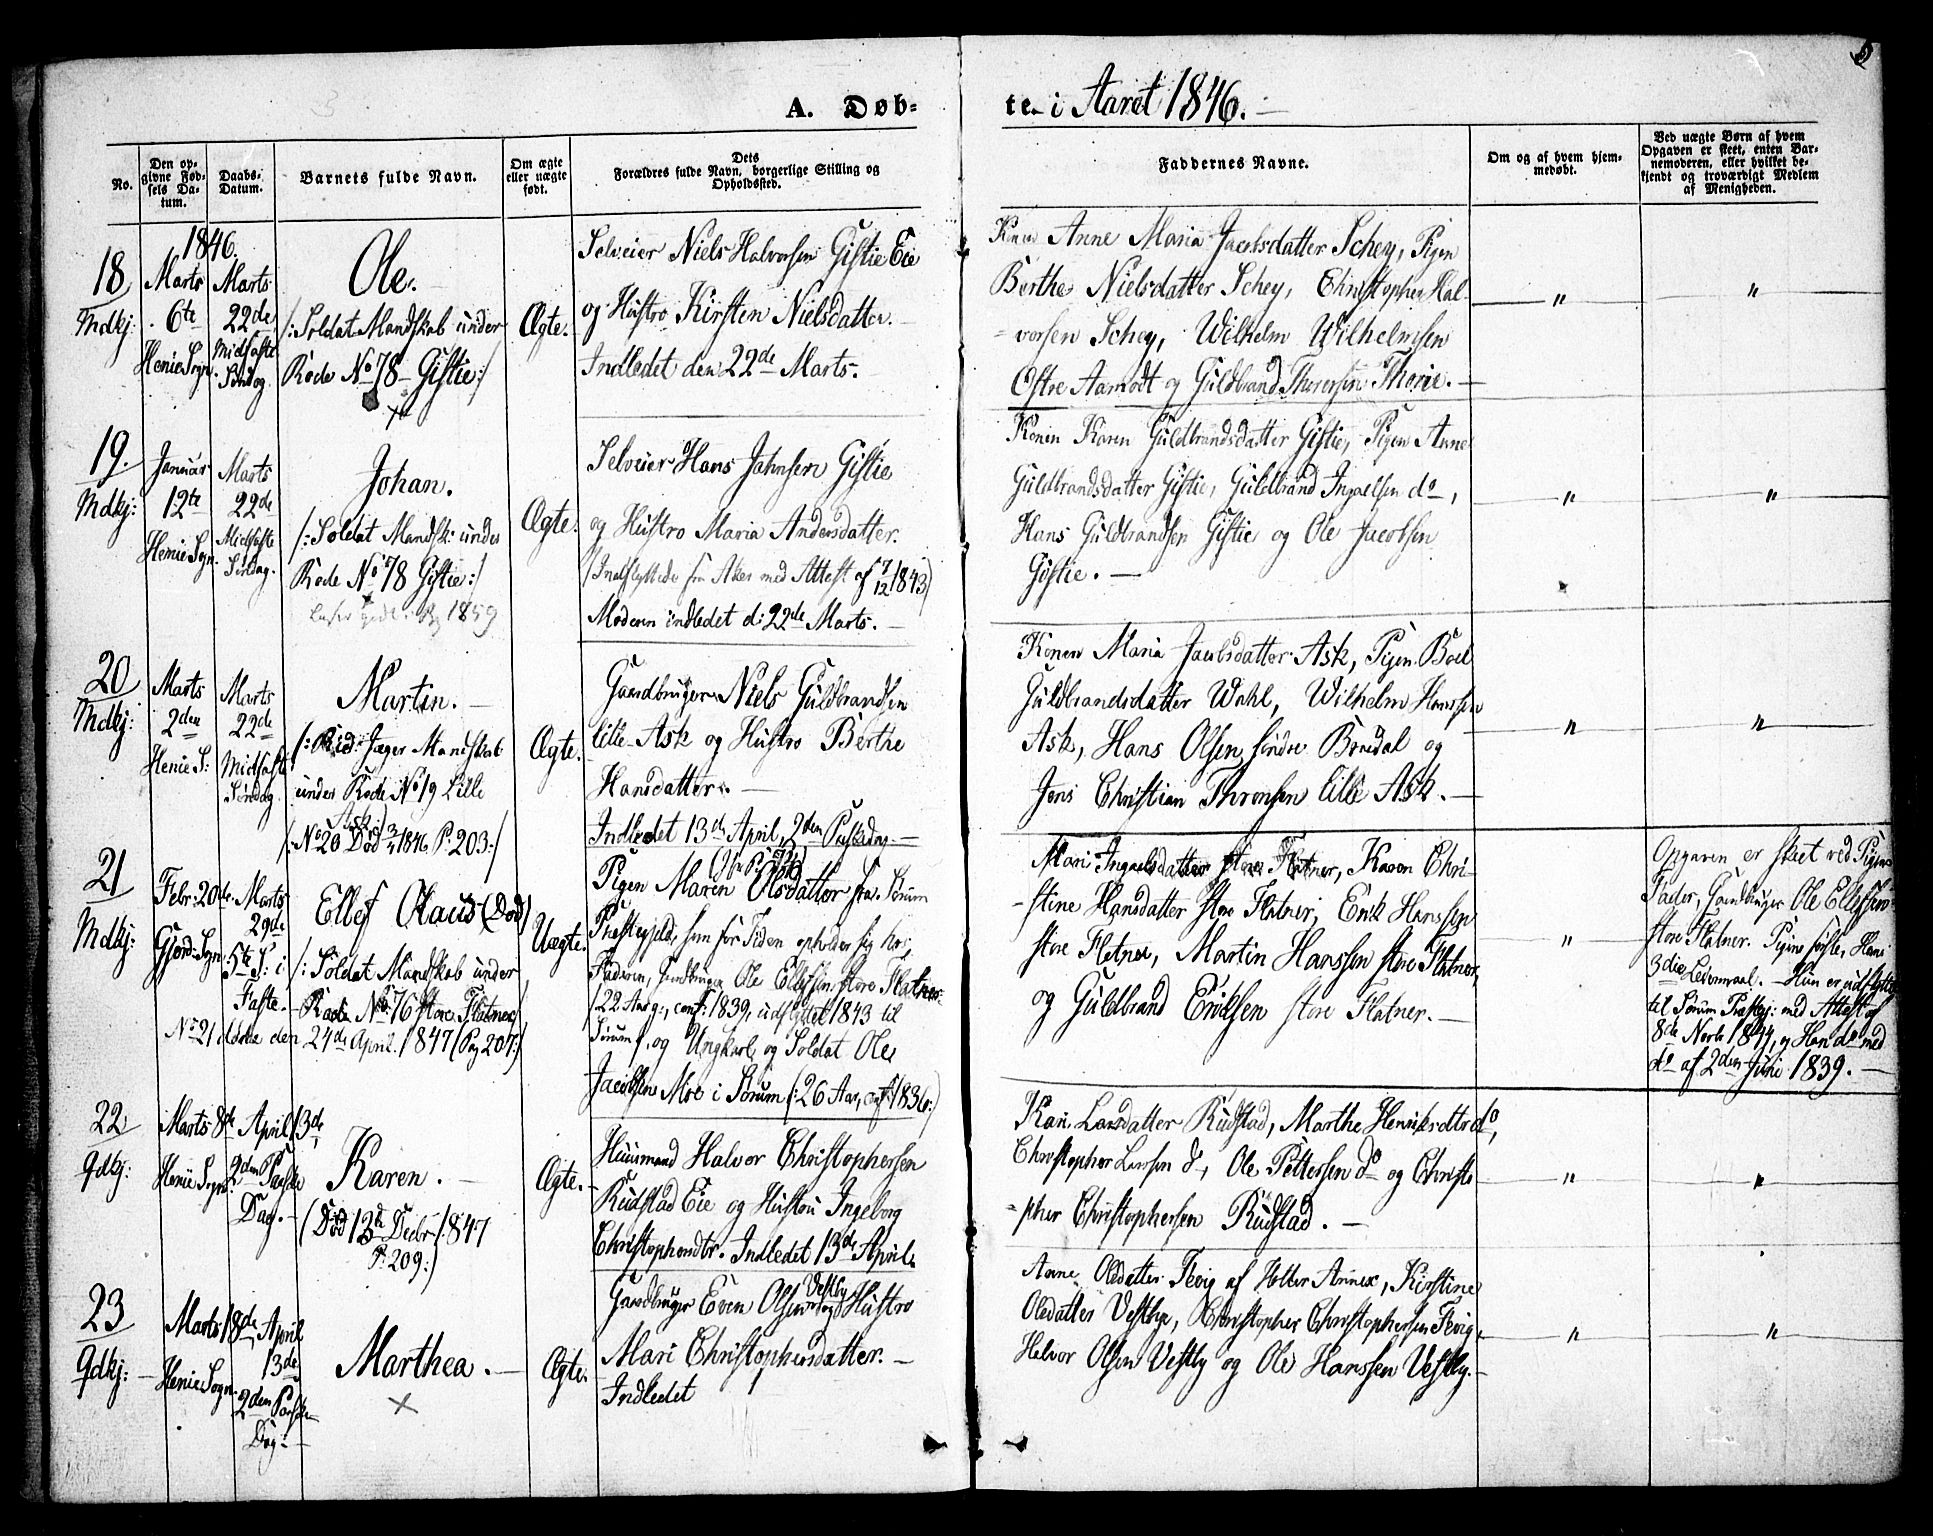 A. Døb-
te i Aaret 1846.
No.
Den op-
givne Fød-
sels Da-
tum.
Daabs-
Datum.
Barnets fulde Navn.
Om ægte
eller uægte
født.
Dets
Forældres fulde Navn, borgerlige Stilling og
Opholdssted.
Faddernes Navne.
Om og af hvem hjem-
medøbt.
Ved uægte Børn af hvem
Opgaven er skeet, enten Bar-
nemoderen, eller hvilket be-
kjendt og troværdigt Medlem
af Menigheden.
1846.
18
Mdkj:
Marts
6te
Henie Sogn.
Marts
22de
Midfaste
Søndag.
Ole.
/: Soldat Mandskab under
Rode No 78 Gistie :/
Ægte.
Selveier Niels Halvorsen Gistie Eie
og Hustro Kirsten Nielsdatter.
Indledet den 22de Marts.
Konen Anne Maria Jacobsdatter Schey, Pigen
Berthe Nielsdatter Schey, Christopher Hal-
vorsen Schey, Wilhelm Wilhelmsen
Østre Aamodt og Guldbrand Thoresen Thorie.
"
"
19.
Mdkj:
Januar
12te
Henie Sogn.
Marts
22de
Midfaste
Søndag.
Johan.
/: Soldat Mandsk: under
Rode No 78 Gistie :/
1859
Ægte.
Selveier Hans Jahnsen Gistie
og Hustro Maria Andersdatter.
(Indflyttede fra Aker med Attest af 7/12 1843)
Moderen indledet d: 22de Marts.
Konen Karen Guldbrandsdatter Gistie, Pigen Anne
Guldbrandsdatter Gistie, Guldbrand Ingaelsen do,
Hans Guldbrandsen Gistie og Ole Jacobsen
Gistie.
"
"
20
Mdkj:
Marts
2den
Henie S:
Marts
22de
Midfaste
Søndag.
Martin.
/: Rid: Jæger Mandskab
under Rode No 19 Lille
Ask :/
/: No 20 Død 3/4 1846 P. 203 :/
Ægte.
Gaardbruger Niels Guldbrandsen
lille Ask og Hustro Berthe
Hansdatter.
Indledet 13de April, 2den Paaskedag.
Konen Maria Jacobsdatter Ask, Pigen Boel
Guldbrandsdatter Wahl, Wilhelm Hanssen
Ask, Hans Olsen søndre Bredal og
Jens Christian Thronsen lille Ask.
"
"
21
Mdkj:
Febr: 20de
Gjerd: Sogn
Marts
29de
5te S: i
Faste.
Ellef Olaus (Død)
/: Soldat Mandskab under
Rode No 76 store Flatner
No 21 døde den 24de April 1847 (Pag 207:)
Uægte.
Pigen Maren Olsdatter fra Sørum
Præstegjeld, som for Tiden opholder sig hos
Faderen, Gaardbruger Ole Ellefsen store Flatner
/22 Aar g:, conf: 1839, udflyttet 1843 til
Sørum/, og Ungkarl og Soldat Ole
Jacobsen Moe i Sørum (: 26 Aar, conf: 1836:)
Mari Ingaelsdatter store Flatner, Karen Chri-
stine Hansdatter store Flatner, Erik Hanssen
store Flatner, Martin Hanssen store Flatner,
og Guldbrand Eriksen store Flatner.
"
Opgaven er skeet ved Pigens
Fader, Gaardbruger Ole Ellefsen
store Flatner. Pigens første, Hans
3die Leiermaal. Hun er udflyttet
til Sørum Præstgj: med Attest af
8de Novbr 1844, og Han do med
do af 2den Juni 1839.
22
Gdkj:
Marts 8de
Henie Sogn.
April 13de
2den Paaske
Dag.
Karen.
(Død 13de Decbr 1847
P: 209:)
Ægte.
Huusmand Halvor Christophersen
Rudstad Eie og Hustru Ingeborg
Christophersdtr. Indledet 13de April.
Kari Larsdatter Rudstad, Marthe Henriksdtr do,
Christopher Larssen do, Ole Pettersen do og Christo-
pher Christophersen Rudstad.
"
"
23
Gdkj:
Marts 18de
Henie Sogn.
April
13de
2den Paaske
Dag.
Marthea.
Ægte.
Gaardbruger Even Olsen Vestby og Hustro
Mari Christophersdatter.
Indledet
Anne Olsdatter Tevig af Holter Annex, Kirstine
Olsdatter Vestbye, Christopher Christophersen Tevig,
Halvor Olsen Vestby og Ole Hanssen Vestby.
"
"